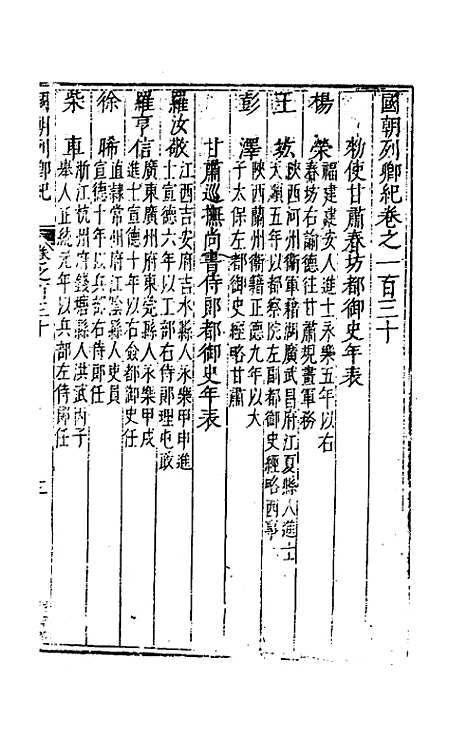 國朝列卿紀卷之一百三十
勑使甘肅春坊都御史年表
楊榮 福建建安人進士永樂五年以右
春坊右諭德往甘肅規畫軍務
王竑 陜西河州衞軍籍湖廣武昌府江夏縣人進士
天順五年以都察院左副都御史經略西事
彭澤 陜西蘭州衞籍正德九年以太
子太保左都御史經略甘肅
甘肅巡撫尚書侍郎都御史年表
羅汝敬 江西吉安府吉水縣人永樂甲申進
士宣德六年以工部右侍郎理屯政
羅亨信 廣東廣州府東莞縣人永樂甲戌
進士宣德十年以右僉都御史任
徐晞 直隸常州府江陰縣人吏員
宣德十年以兵部右侍郎任
柴車 浙江杭州府錢塘縣人洪武丙子
舉人正統元年以兵部左侍郎任
國朝列卿紀 卷之百三十 一